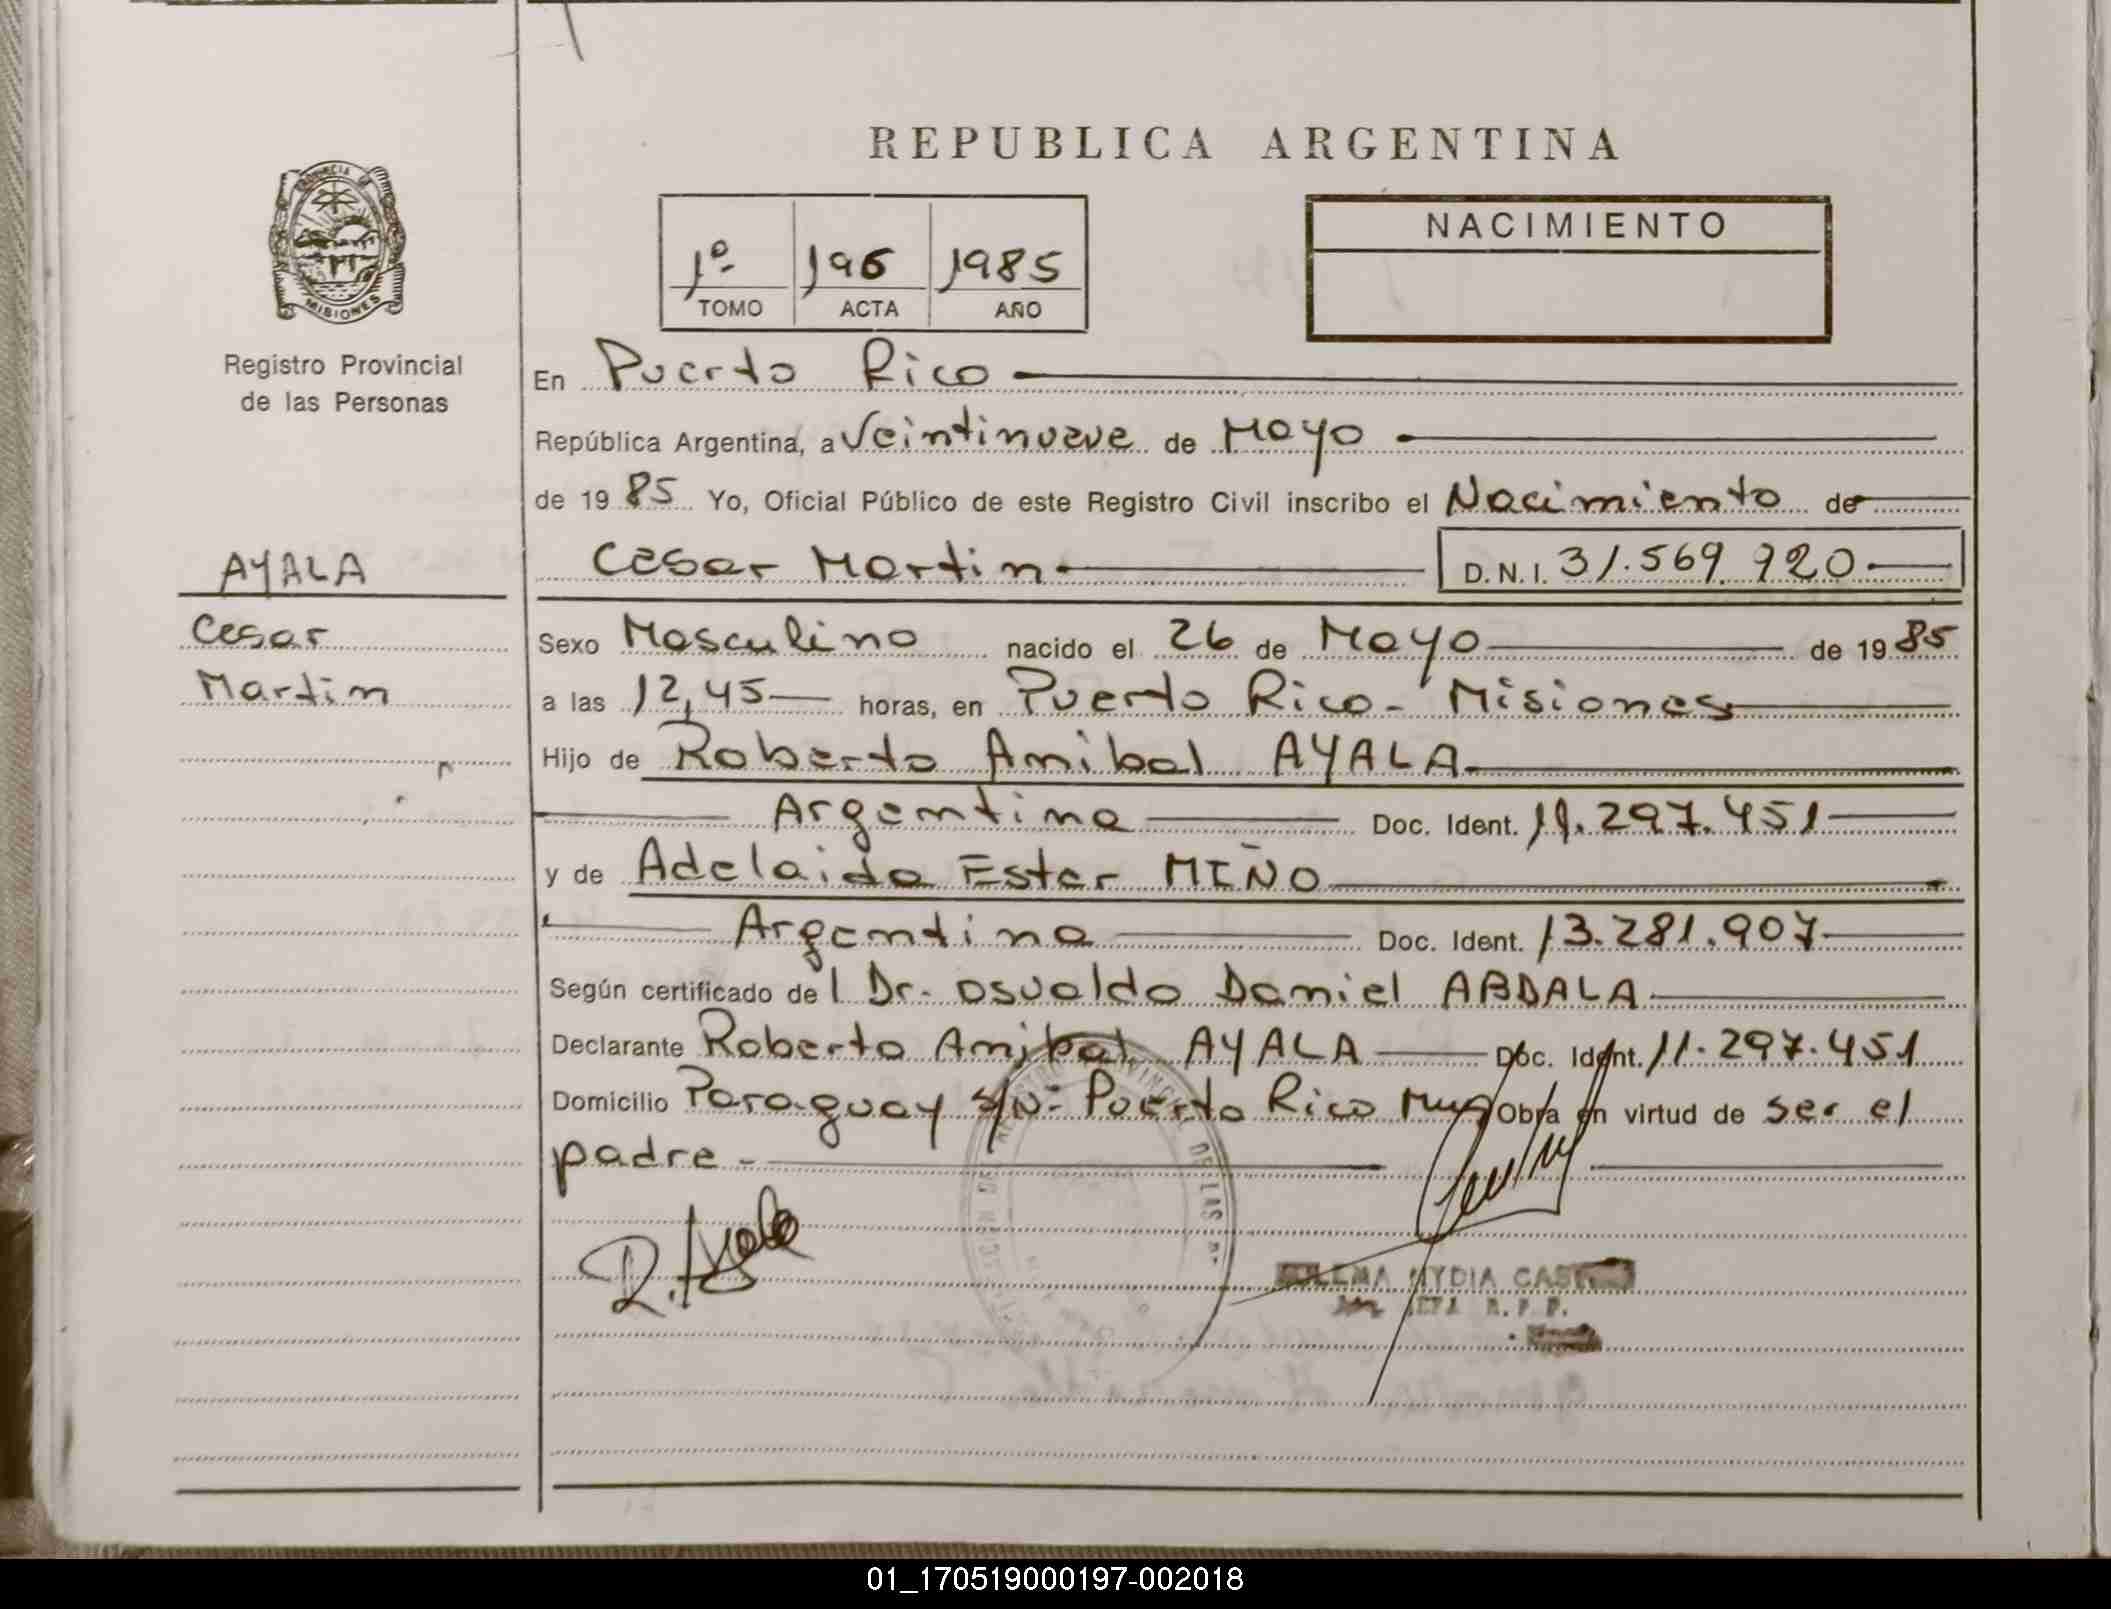 REPUBLICA ARGENTINA
PROVINCIA DE
MISIONES
Registro Provincial
de las Personas
AYALA
Cesar
Martin
1º 196 1985
TOMO ACTA AÑO
NACIMIENTO
En Puerto Rico
República Argentina, a Veintinueve de Mayo
de 19 85 Yo, Oficial Público de este Registro Civil inscribo el Nacimiento de
Cesar Martin D.N.I. 31.569.920
Sexo Masculino nacido el 26 de Mayo de 19 85
a las 12,45 horas, en Puerto Rico - Misiones
Hijo de Roberto Anibal AYALA
Argentina Doc. Ident. 11.297.451
y de Adelaida Ester MIÑO
Argentina Doc. Ident. 13.281.907
Según certificado del Dr. Osvaldo Daniel ABDALA
Declarante Roberto Anibal AYALA Doc. Ident. 11.297.451
Domicilio Paraguay s/Nº Puerto Rico Mnes Obra en virtud de ser el
padre
R. Ayala
NYDIA
R. P. P.
01_170519000197-002018